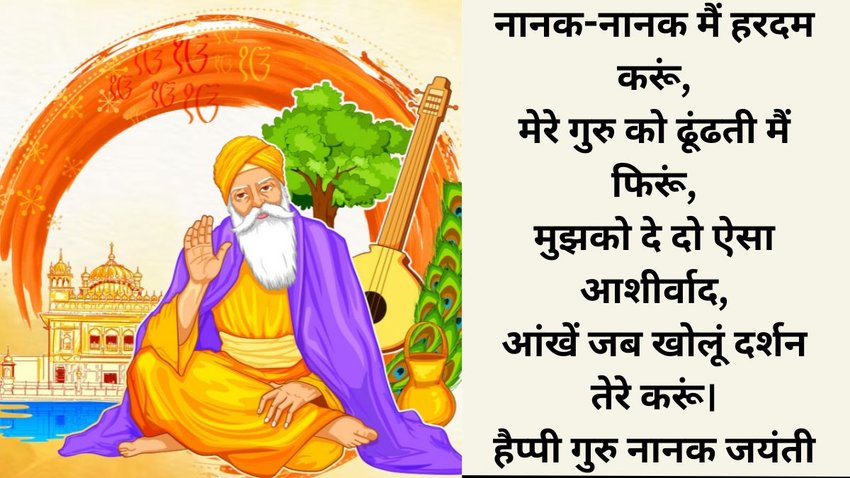 नानक-नानक मैं हरदम
करूं,
मेरे गुरु को ढूंढती मैं
फिरूं,
मुझको दे दो ऐसा
आशीर्वाद,
आंखें जब खोलूं दर्शन
तेरे करूं।
हैप्पी गुरु नानक जयंती
ੴ ੴ ੴ
ੴ ੴ ੴ